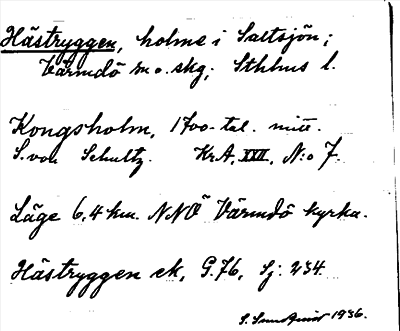 Hästryggen, holme i Saltsjön;
Värmdö sn o. skg; Sthlms l.
Kongsholm, 1700-tal. mitt.
S. von Schultz. KrA, XXII, N:o 7.
Läge 6,4 km. NNÖ Värmdö kyrka.
Hästryggen ek, G.76, Sj: 234.
1936.